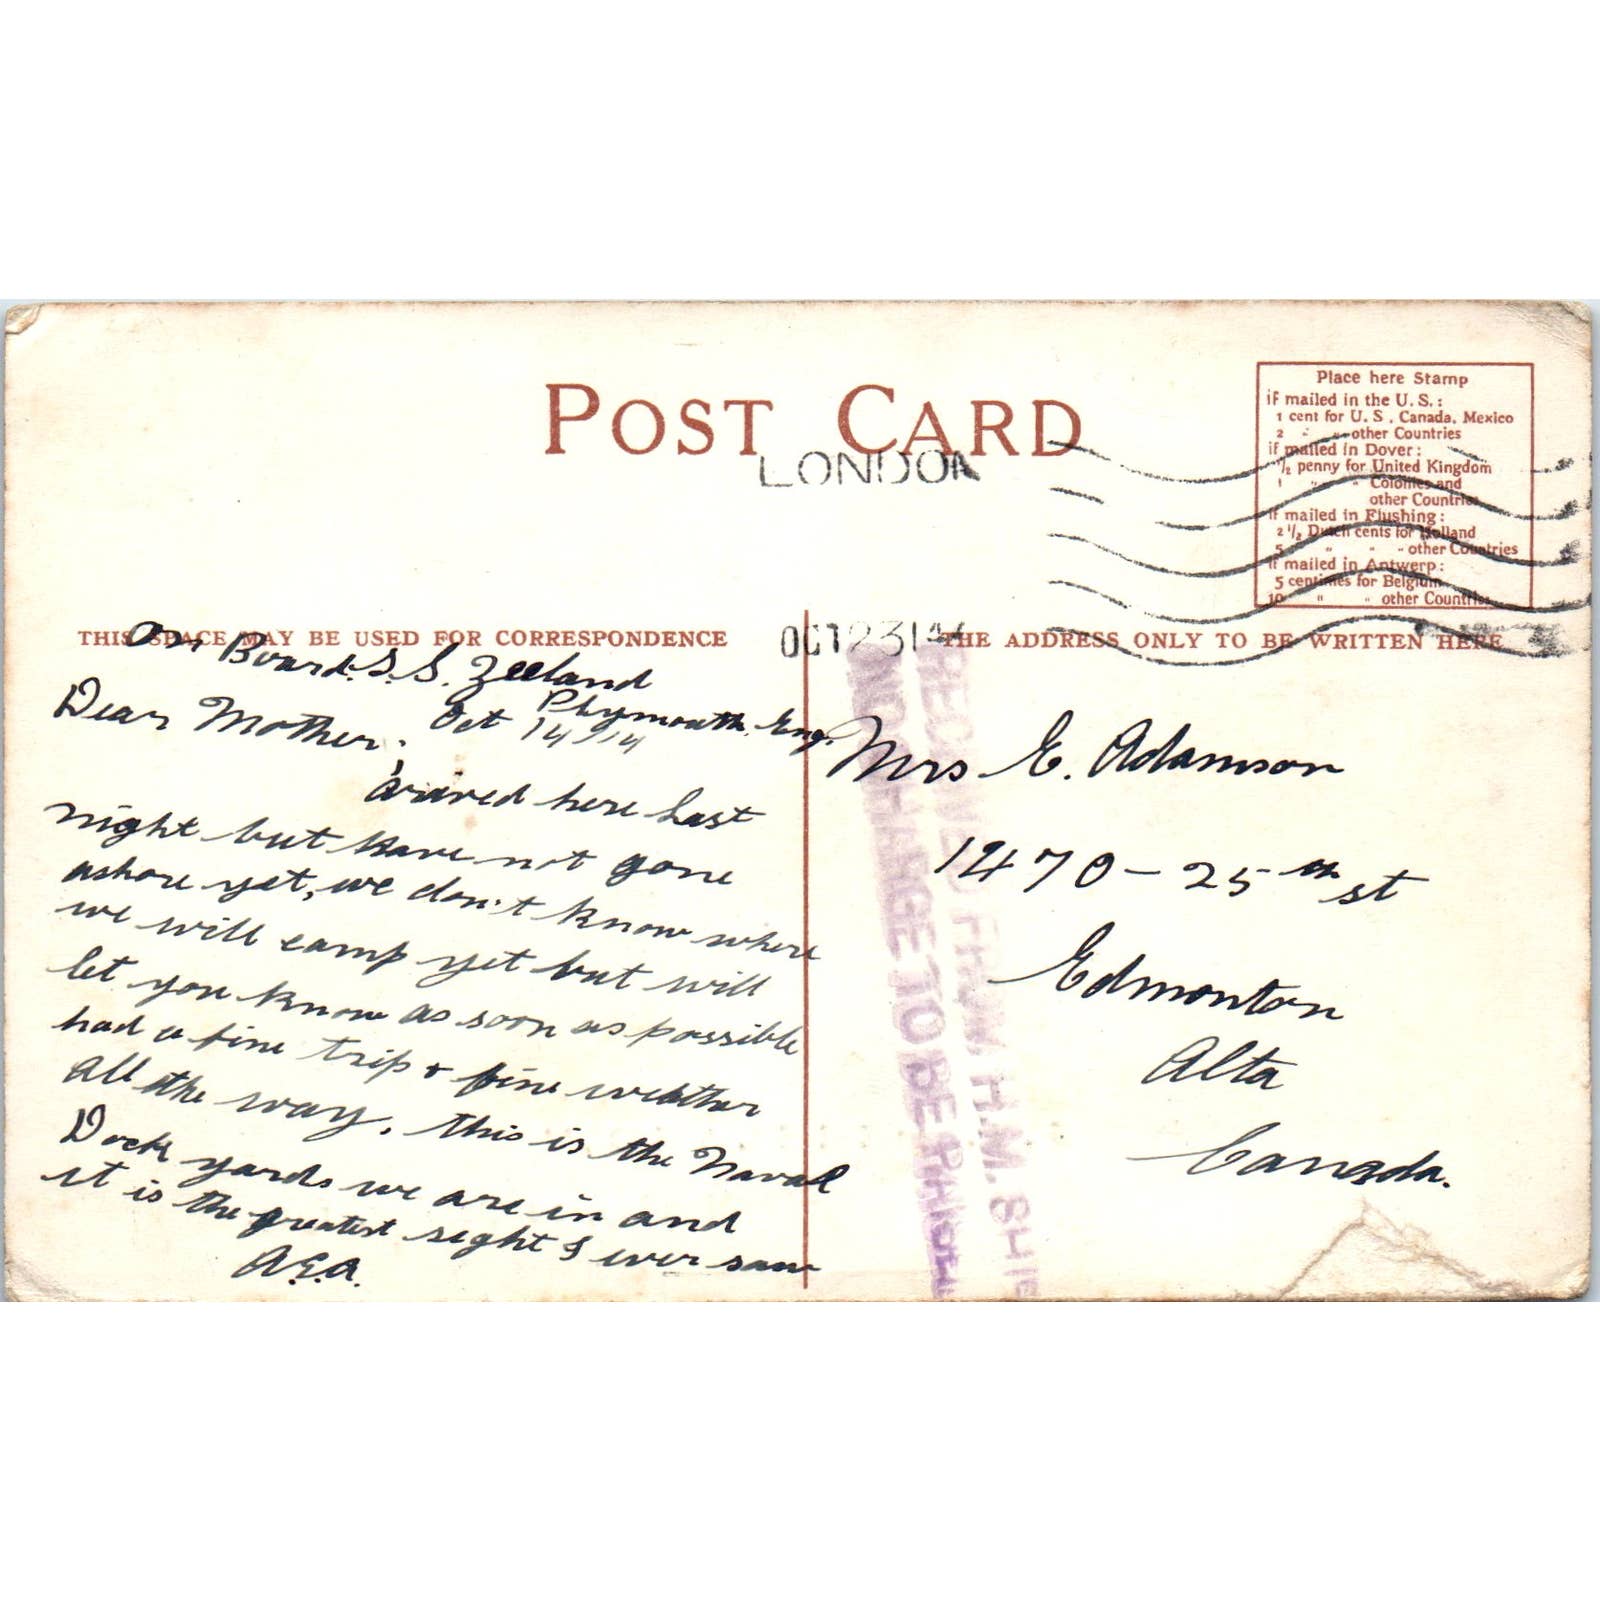 POST CARD
LONDON
Place here Stamp
if mailed in the U.S.:
1 cent for U.S., Canada, Mexico
2 " " other Countries
if mailed in Dover:
1/2 penny for United Kingdom
1 " " Colonies and
other Countries
if mailed in Flushing:
2 1/2 Dutch cents for Holland
5 " " " other Countries
if mailed in Antwerp:
5 centimes for Belgium
10 " " other Countries
THIS SPACE MAY BE USED FOR CORRESPONDENCE
OCT 23 14
THE ADDRESS ONLY TO BE WRITTEN HERE
On Board S.S. Zeeland
Plymouth, Eng.
Oct 14/14
Dear Mother;
Arived here last
night but have not gone
ashore yet, we don't know where
we will camp yet but will
let you know as soon as possible
had a fine trip & fine weather
all the way. this is the Naval
Dock yards we are in and
it is the greatest sight I ever saw
A.E.A.
Mrs E. Adamson
1470-25th st
Edmonton
Alta
Canada.
RECEIVED FROM H.M. SHIP
NO CHARGE TO BE RAISED